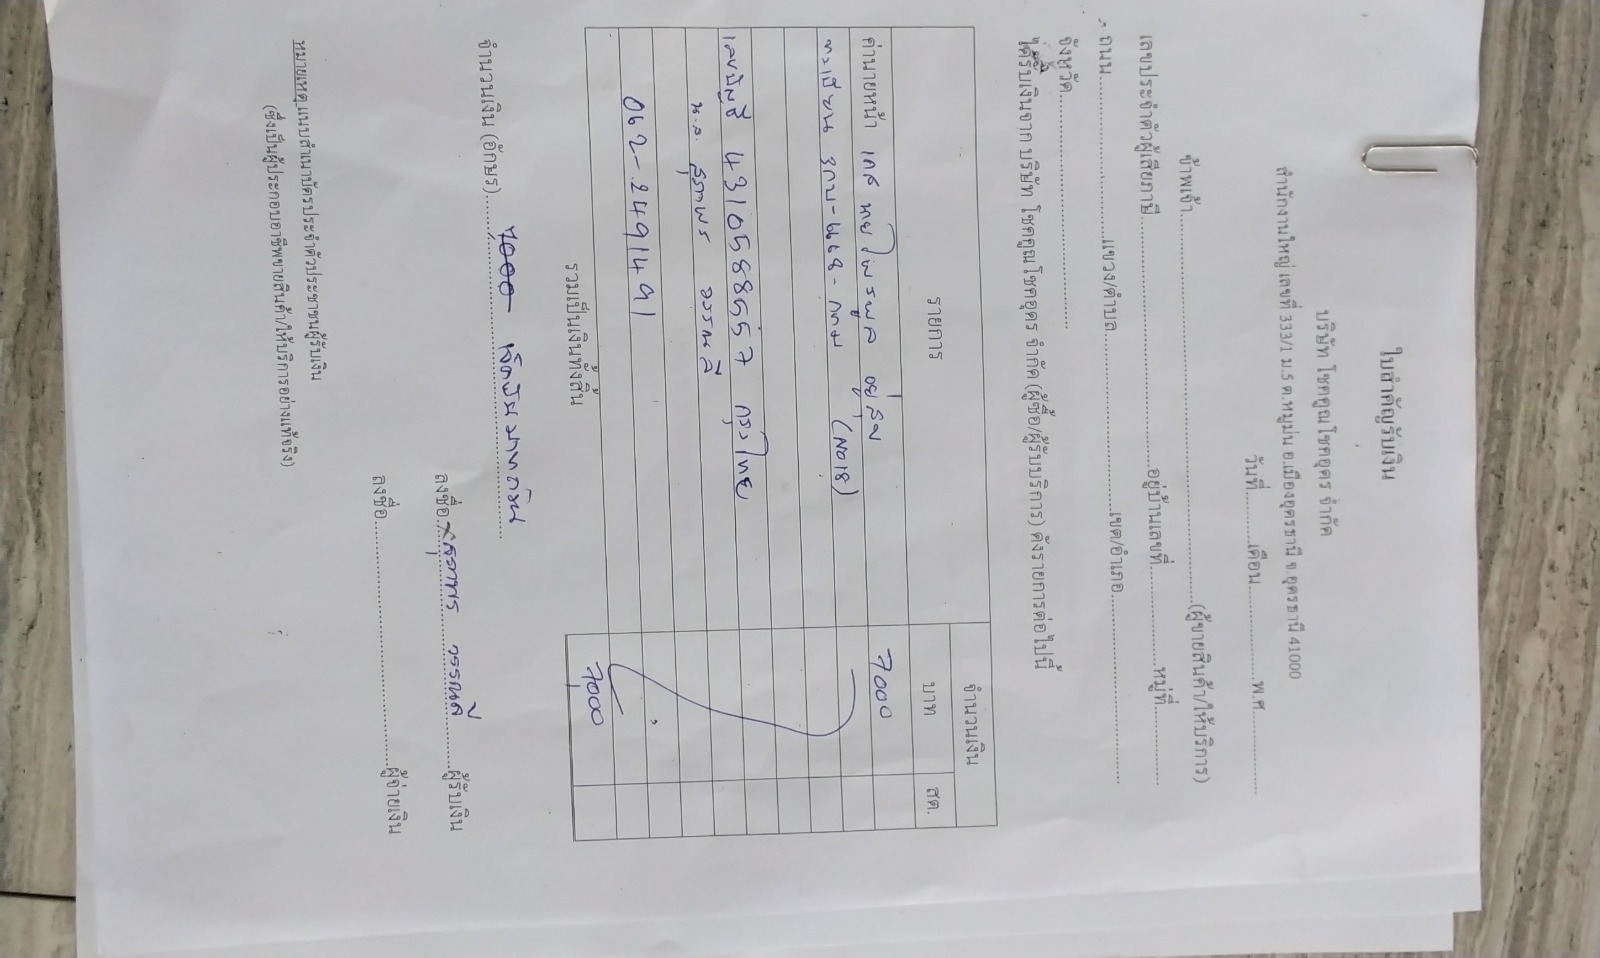 ใบสำคัญรับเงิน
บริษัท โชคคูณโชคอุดร จำกัด
สำนักงานใหญ่ เลขที่ 333/1 ม.5 ต.หมูม่น อ.เมืองอุดรธานี จ.อุดรธานี 41000
วันที่..............เดือน......................พ.ศ..................
ข้าพเจ้า..............................................................(ผู้ขายสินค้า/ให้บริการ)
เลขประจำตัวผู้เสียภาษี..............................................อยู่บ้านเลขที่....................หมู่ที่..............
ถนน..............................แขวง/ตำบล................................เขต/อำเภอ..................................
จังหวัด..............................................
ได้รับเงินจาก บริษัท โชคคูณโชคอุดร จำกัด (ผู้ซื้อ/ผู้รับบริการ) ดังรายการต่อไปนี้
รายการ จำนวนเงิน
บาท สต.
ค่านายหน้า เคส นายไพรบูล 7000
ทะเบียน (NO18)
เลขบัญชี 4310588667 กรุงไทย
น.ส. สุภาพร วรรณดี
062-2491491
รวมเป็นเงินทั้งสิ้น 7,000
จำนวนเงิน (อักษร) เจ็ดพันบาทถ้วน
ลงชื่อ สุภาพร วรรณดี ผู้รับเงิน
ลงชื่อ..................................................ผู้จ่ายเงิน
หมายเหตุ แนบสำเนาบัตรประจำตัวประชาชนผู้รับเงิน
(ซึ่งเป็นผู้ประกอบอาชีพขายสินค้า/ให้บริการอย่างแท้จริง)